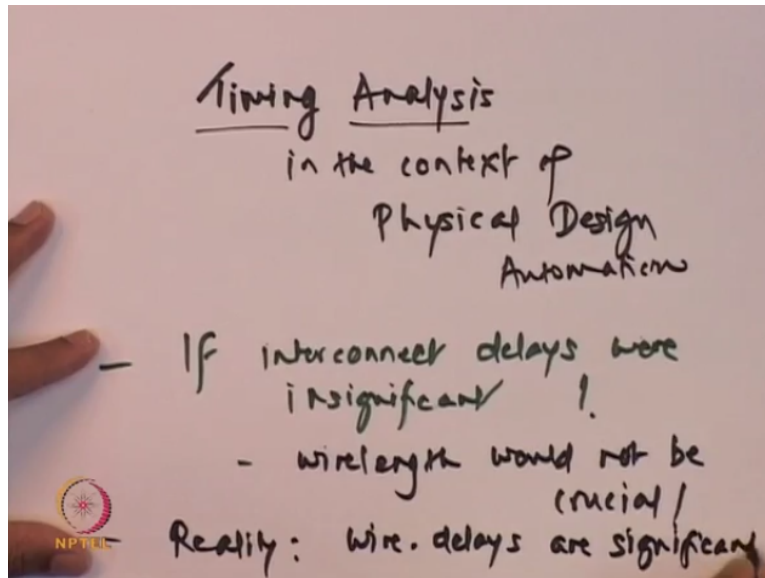 Timing Analysis
in the context of
Physical Design
Automation
- If interconnect delays were
insignificant !
- wirelength would not be
crucial!
- Reality: wire.delays are significant
NPTEL